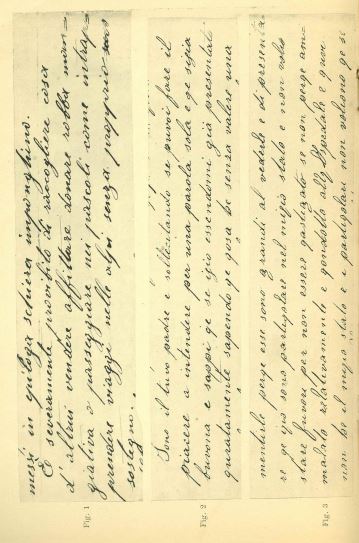 messi in epiloga schiera imponghino.
E severamente proibito di raccogliere cosa
d'altrui vendere affittare donare robba man-
giativa o passeggiare nei pascoli come intrap-
prendere viaggi nello alpi senza pappirio suo
sostegno.
Fig. 1
Sono il tuvo padre e sollecitando se puvoi fare il
piacere a intendere per una parola sola e ge sigia
buvona e sappi ge se igio essendomi già presentato
guratamente sapendo ge gosa be senza valere una
Fig. 2
mentirle perge esse sono grandi al vederle e di presenta
re ge ijo sono partigolare nel mijo stato e non volio
stare fuvori per non essere gastigato se non perge am-
malato relativamente e gondotto allo Spedale e quve
non be il mijo stato e i partigolari non voliono ge si
Fig. 3